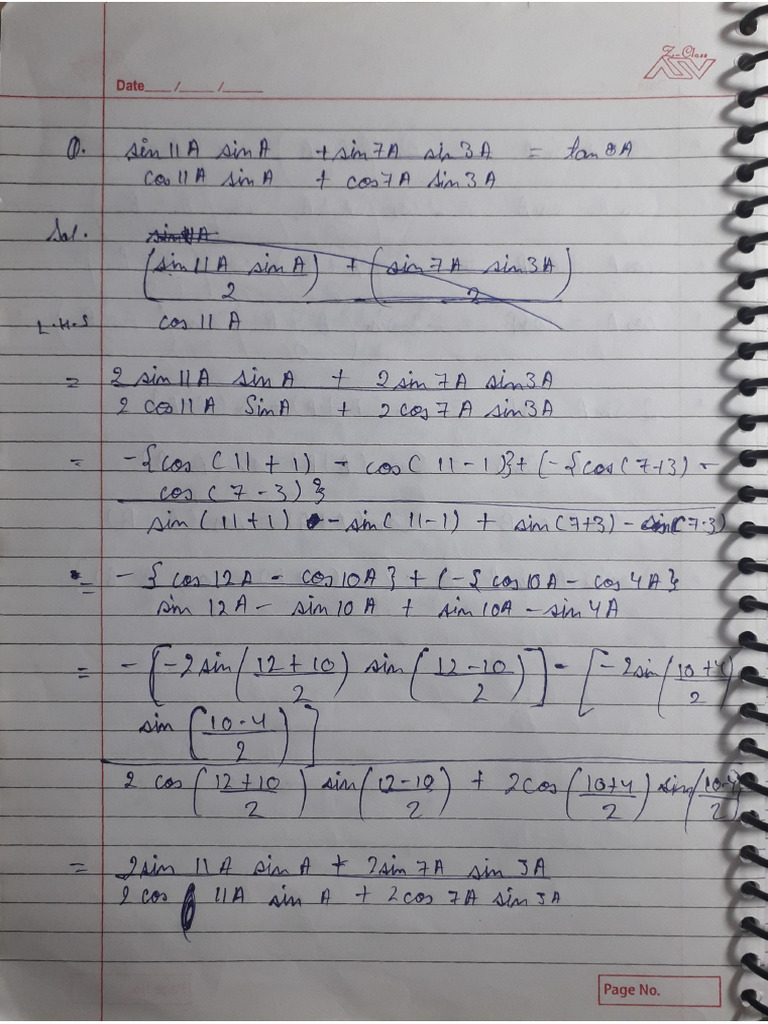 Z-Class
Date___/___/___
Q. sin 11A sin A + sin 7A sin 3A = tan 8A
cos 11A sin A + cos 7A sin 3A
Sol.
(sin 11A sin A) + (sin 7A sin 3A)
2 2
L.H.S cos 11 A
= 2 sin 11A sin A + 2 sin 7A sin 3A
2 cos 11A Sin A + 2 cos 7A sin 3A
= -{cos (11 + 1) - cos (11 - 1)} + (-{cos (7+3) -
cos (7 - 3)}
sin (11+1) - sin (11-1) + sin (7+3) - sin (7-3)
= - {cos 12A - cos 10A} + (-{cos 10A - cos 4A}
sin 12A - sin 10A + sin 10A - sin 4A
= - [-2 sin (12 + 10) sin (12 - 10)] - [-2 sin (10 + 4)
2 2 2
sin [10 - 4)]
2
2 cos (12 + 10) sin (12 - 10) + 2 cos (10 + 4) sin (10 - 4)
2 2 2 2
= 2 sin 11 A sin A + 2 sin 7A sin 3A
2 cos 11A sin A + 2 cos 7A sin 3A
Page No.